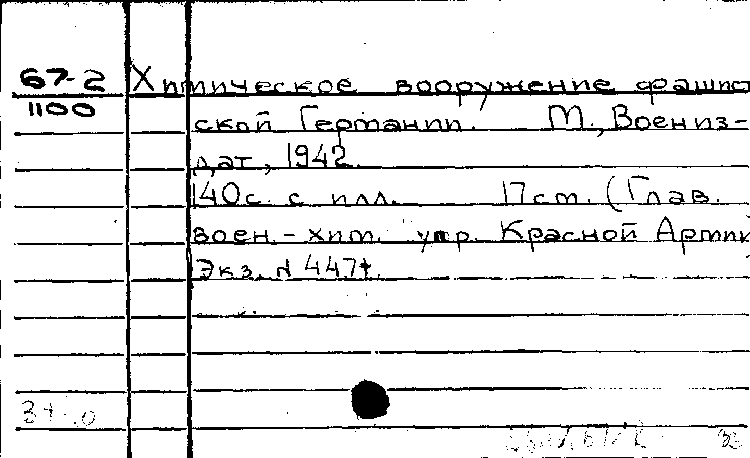 67-2 Химическое вооружение фашист
1100
ской Германии. М., Воениз-
дат, 1942.
140с. с илл. 17см. (Глав.
воен.-хим. упр. Красной Армии
Экз. N